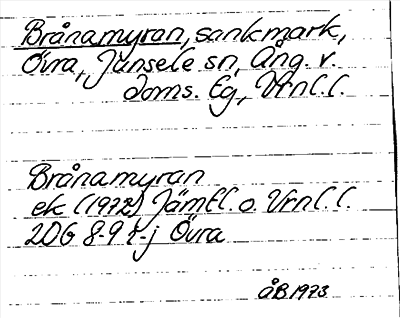 Brånamyran, sankmark,
Övra, Junsele sn, Ång. v.
doms. Eg, Vrnl. l.
Brånamyran
ek (1972) Jämtl. o. Vrnl. l.
20G 8-9 i-j Övra
ÅB 1973